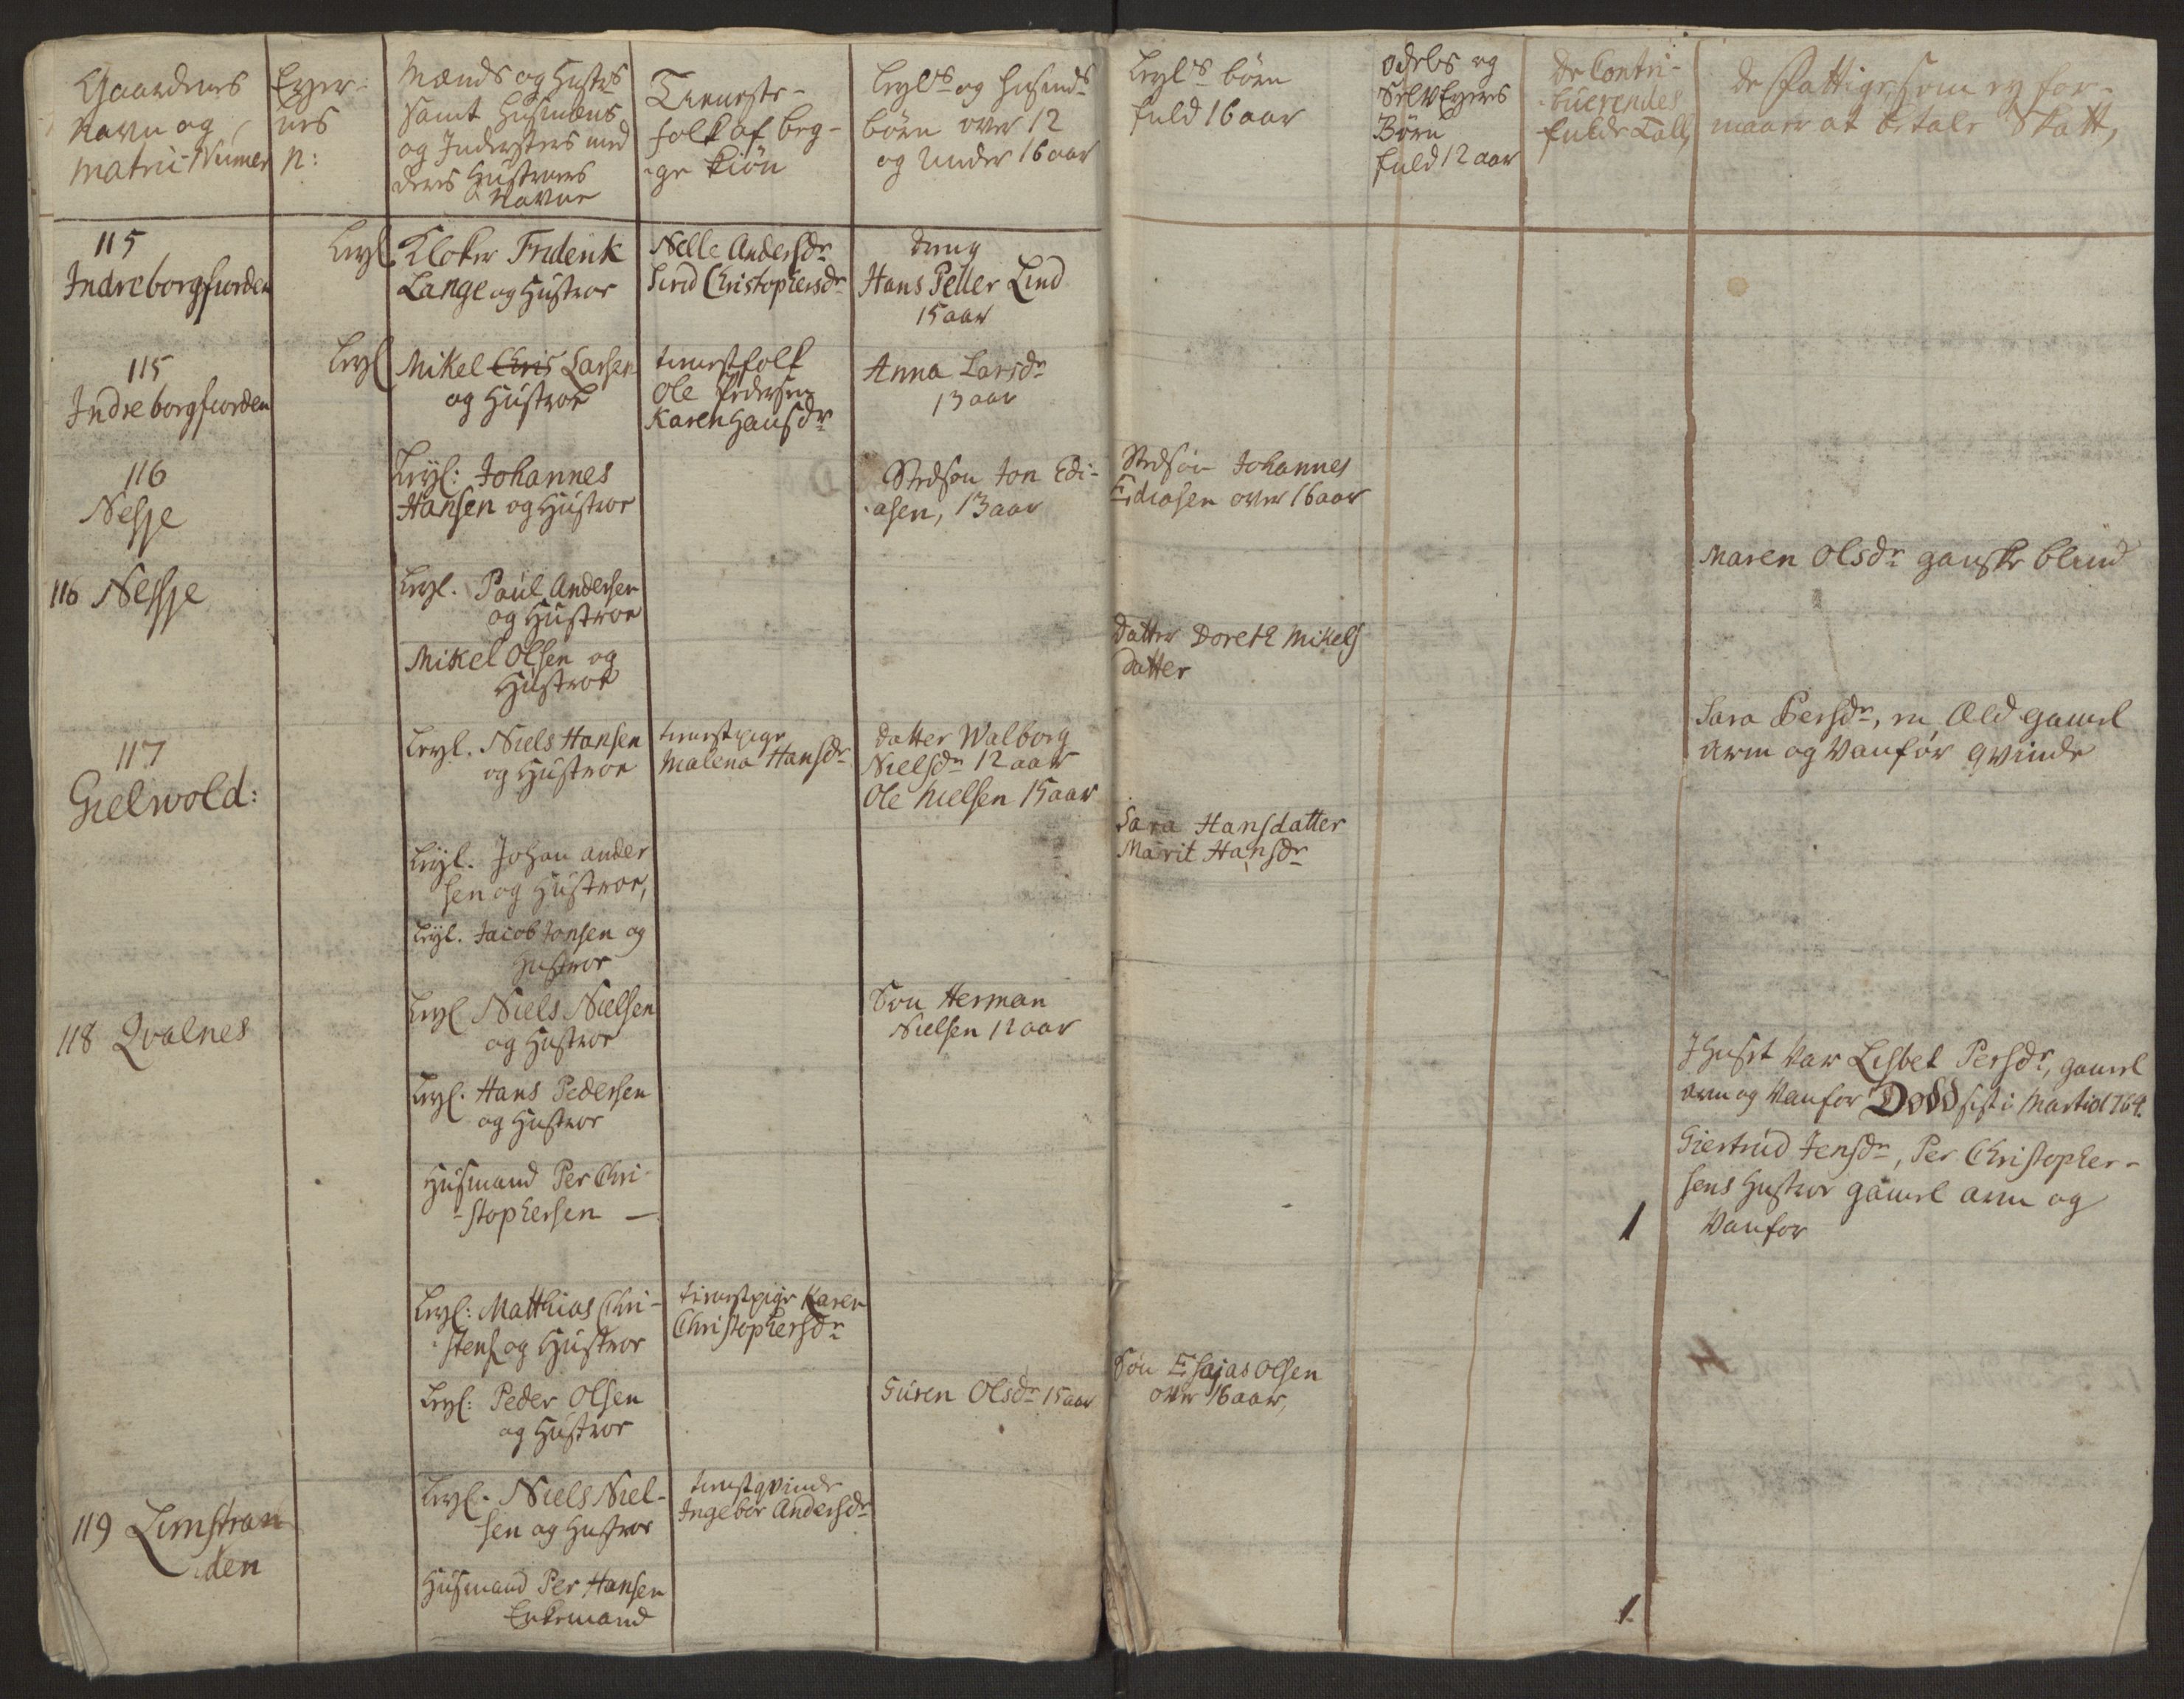 Gaardenes
Navn og
Matric Numer
Eyer-
nes
N:
Mænds og Hustrs
samt Husmæns
og Indersters med
deres Hustruers
Navne
Tieneste-
folk af beg-
ge Kiön
Leyls og Husmds
börn over 12
og under 16 aar
Leyls börn
fuld 16 aar
Odels og
SelvEyers
Börn
fuld 12 aar
De Contri-
buerendes
fulde Tall,
de Fattige, som ey for-
maaer at betale Skatt,
115
Indreborgfiorden
Leyl. Kloker Friderik
Lange og Hustroe
Nelle Andersdr
Sird Christophersdr
dreng
Hans Peller Lind
15 aar
115
Indreborgfiorden
Leyl Mikel Chris Larsen
og Hustroe
tienestfolk
Ole Pedersen
Karen Hansdr
Anna Larsdr
13 aar
116
Nesje
Leyl: Johannes
Hansen og Hustroe
Stedsøn Jon Edi-
asen, 13 aar
Stedsøn Johannes
Ediasen over 16 aar
116 Nesje
Leyl. Paul Andersen
og Hustroe
Maren Olsdr ganske blind
Mikel Olsen og
Hustroe
Datter Doreth Mikels
datter
117
Gielwold:
Leyl. Niels Hansen
og Hustroe
tienestpige
Malena Hansdr
datter Walborg
Nielsdr 12 aar
Ole Nielsen 15 aar
Sara Persdr, en Æld gamel
arm og Vanför qvinde
Leyl. Johan Ander
sen og Hustroe,
Sara Hansdatter
Marit Hansdr
Leyl. Jacob Jonsen og
Hustroe
118 Qvalnes
Leyl Niels Nielsen
og Hustroe
Søn Herman
Nielsen 12 aar
I Huset var Lisbet Persdr, gamel
arm og Vanför Dødd sist i Martio 1764.
Leyl. Hans Pedersen
og Hustroe
Husmand Per Chri-
stophersen —
1
Giertrud Jensdr, Per Christopher-
sens Hustroe gamel arm og
Vanför
Leyl: Matthias Chri-
stens og Hustroe
tienestpige Karen
Christophersdr
Leyl: Peder Olsen
og Hustroe
Guren Olsdr 15 aar
Søn Esajas Olsen
over 16 aar,
119 Limstran
den
Leyl. Niels Niel-
sen og Hustroe
tienestqvinde
Ingebor Andersdr
Husmand Per Hansen
Enkemand
1